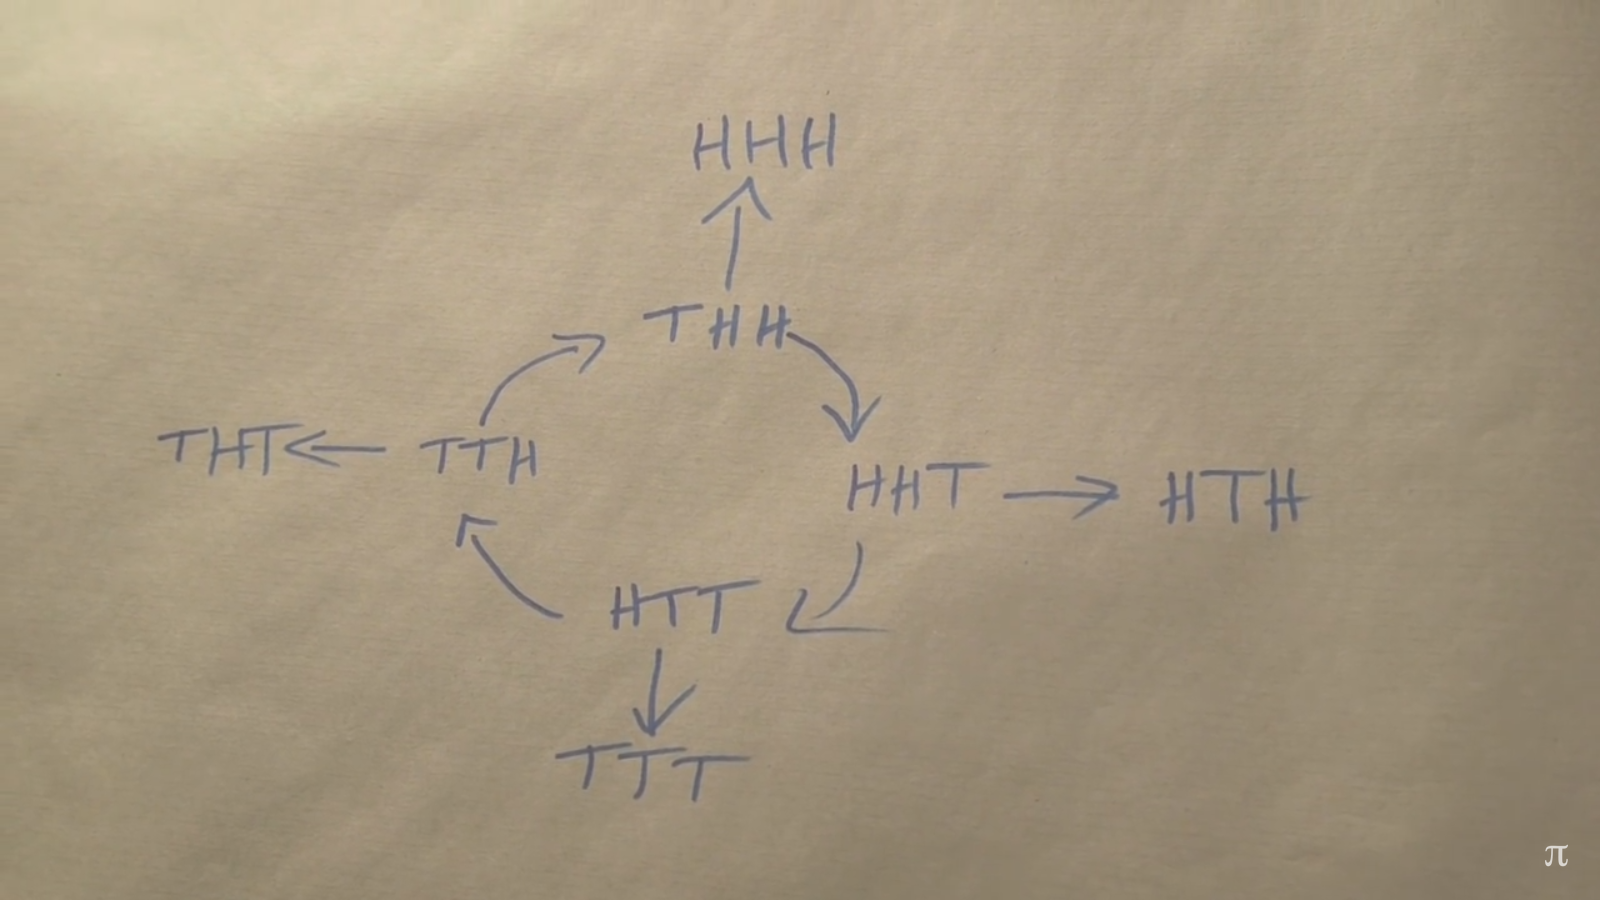 HHH
THH
THT TTH
HHT HTH
HTT
TTT
π